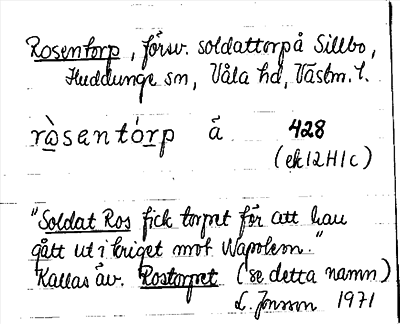 Rosentorp, försv. soldattorp å Sillbo,
Huddunge sn, Våla hd, Västm. l.
rò̲sentór̲p å 428
(ek 12H1c)
"Soldat Ros fick torpet för att han
gått ut i kriget mot Napoleon."
Kallas äv. Rostorpet (se detta namn)
L. Jonson 1971